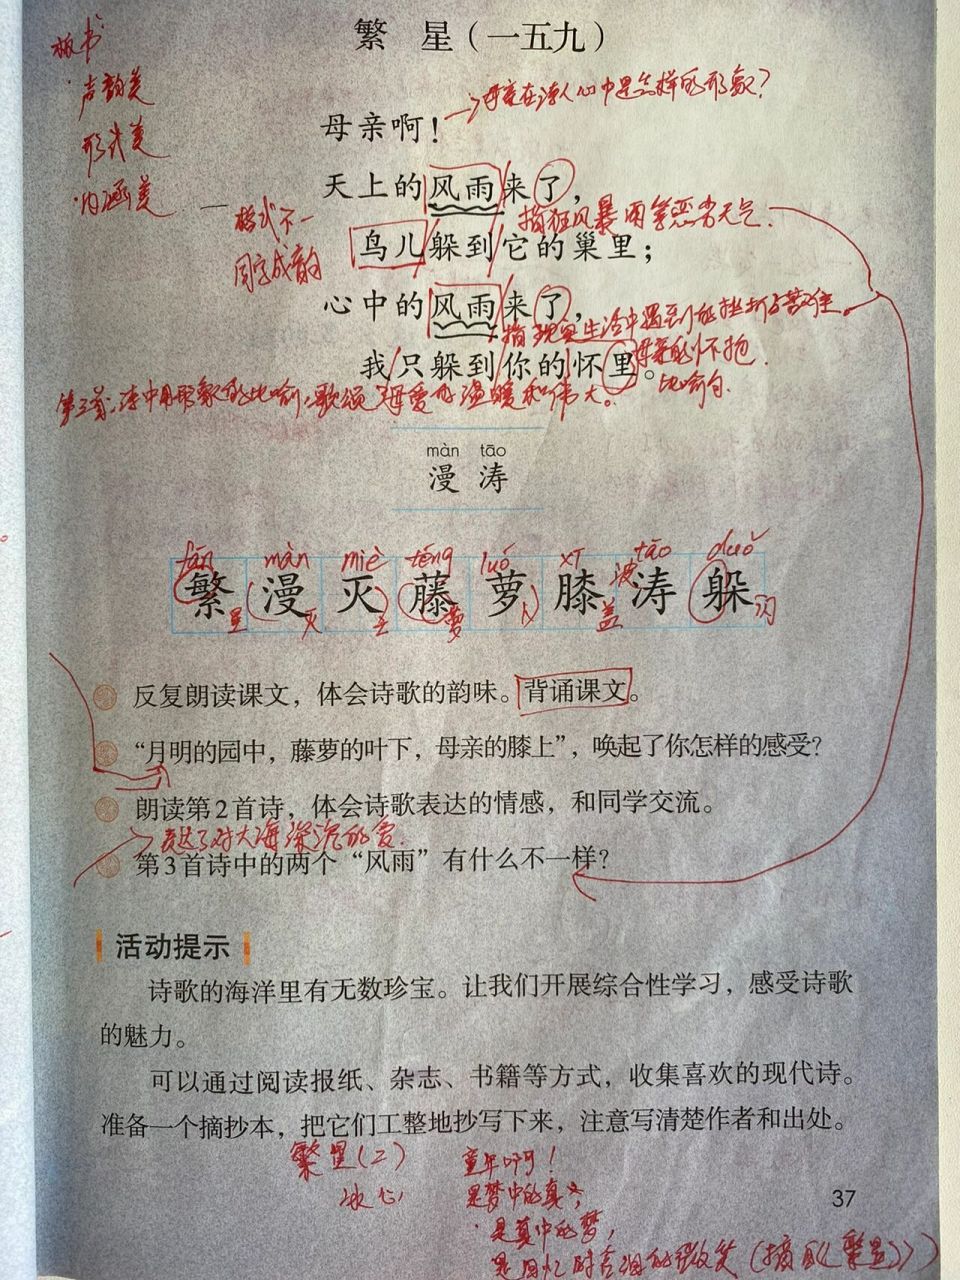 繁 星（一五九）
板书
·声韵美
形式美
·内涵美
母亲啊！
→母亲在诗人心中是怎样的形象？
天上的风雨来了，
格式不一
同字成韵
指狂风暴雨等恶劣天气.
鸟儿躲到它的巢里；
心中的风雨来了，
指现实生活中遇到的挫折与苦难.
我只躲到你的怀里。
母亲的怀抱.
比喻句.
第三首：诗中用形象的比喻，歌颂了母爱的温暖和伟大。
màn tāo
漫 涛
fán màn miè téng luó xī tāo duǒ
繁 漫 灭 藤 萝 膝 波涛 躲
星 灭 去 萝 卜 盖 闪
反复朗读课文，体会诗歌的韵味。背诵课文。
“月明的园中，藤萝的叶下，母亲的膝上”，唤起了你怎样的感受？
朗读第2首诗，体会诗歌表达的情感，和同学交流。
表达了对大海深沉的爱.
第3首诗中的两个“风雨”有什么不一样？
活动提示
诗歌的海洋里有无数珍宝。让我们开展综合性学习，感受诗歌
的魅力。
可以通过阅读报纸、杂志、书籍等方式，收集喜欢的现代诗。
准备一个摘抄本，把它们工整地抄写下来，注意写清楚作者和出处。
繁星（二）
冰心
童年啊！
是梦中的真，
是真中的梦，
是回忆时含泪的微笑（摘自《繁星》）
37